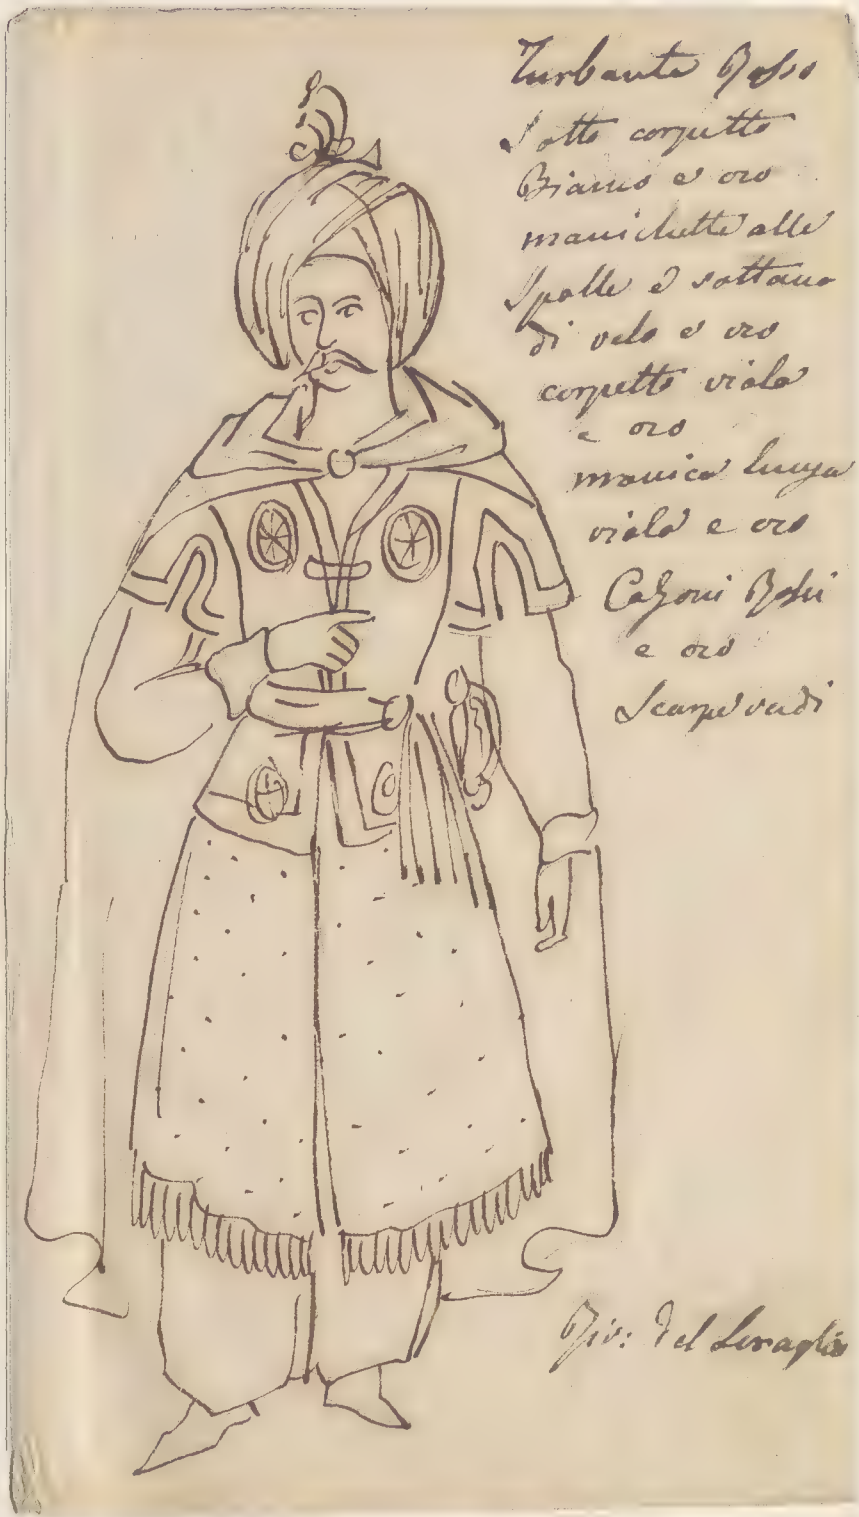 Turbante Rosso
Sotto corpetto
Bianco e oro
manichette alle
Spalle e sottana
di velo e oro
corpetto viola
e oro
manica lunga
viola e oro
Calzoni Rossi
e oro
Scarpe verdi
del Seraglio